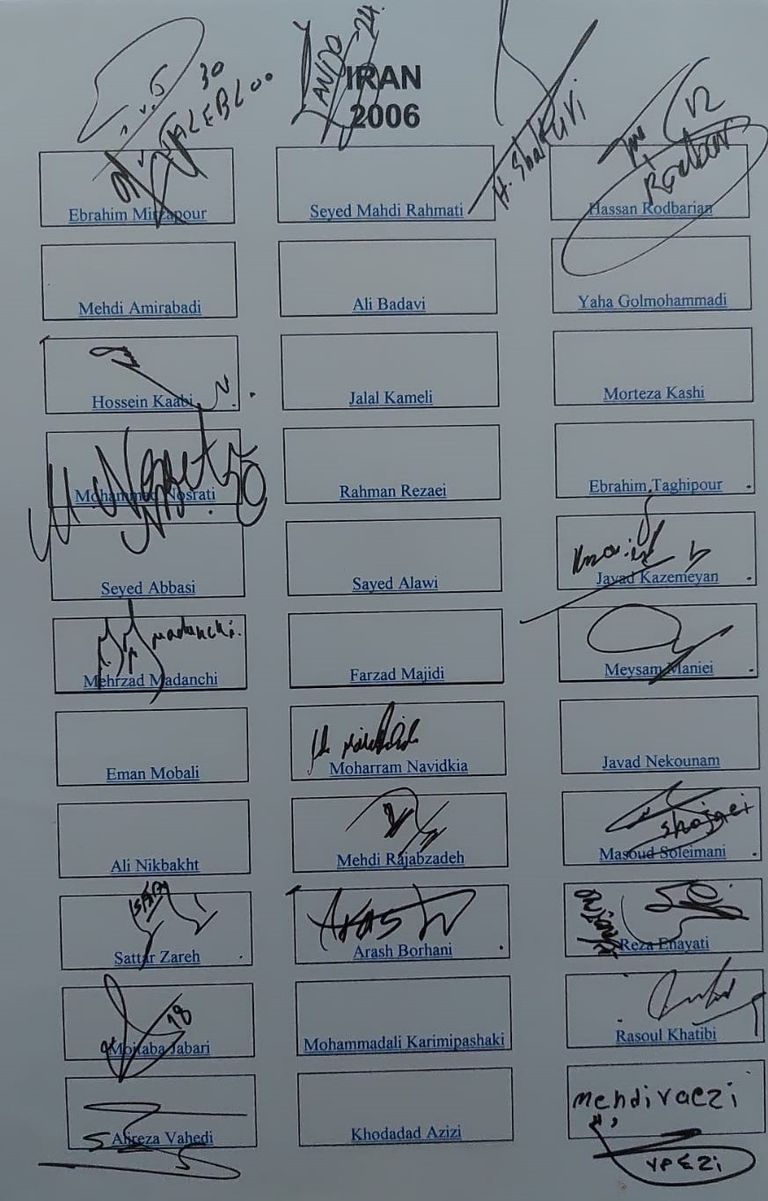 30
TALEBLOO
ANDO
24
H. Shakuri
12
Rodbar
IRAN
2006
Ebrahim Mirzapour
Seyed Mahdi Rahmati
Hassan Rodbarian
Mehdi Amirabadi
Ali Badavi
Yaha Golmohammadi
Hossein Kaabi
Jalal Kameli
Morteza Kashi
M. Nosrati
Mohammad Nosrati
Rahman Rezaei
Ebrahim Taghipour
Seyed Abbasi
Sayed Alawi
Javad Kazemeyan
madanchi.
Mehrzad Madanchi
Farzad Majidi
Meysam Maniei
Eman Mobali
Moharram Navidkia
Javad Nekounam
Ali Nikbakht
Mehdi Rajabzadeh
shojaei
Masoud Soleimani
Sattar Zareh
Arash
Arash Borhani
Reza Enayati
18
Mojtaba Jabari
Mohammadali Karimipashaki
Rasoul Khatibi
mehdi vaezi
Alireza Vahedi
Khodadad Azizi
vaezi